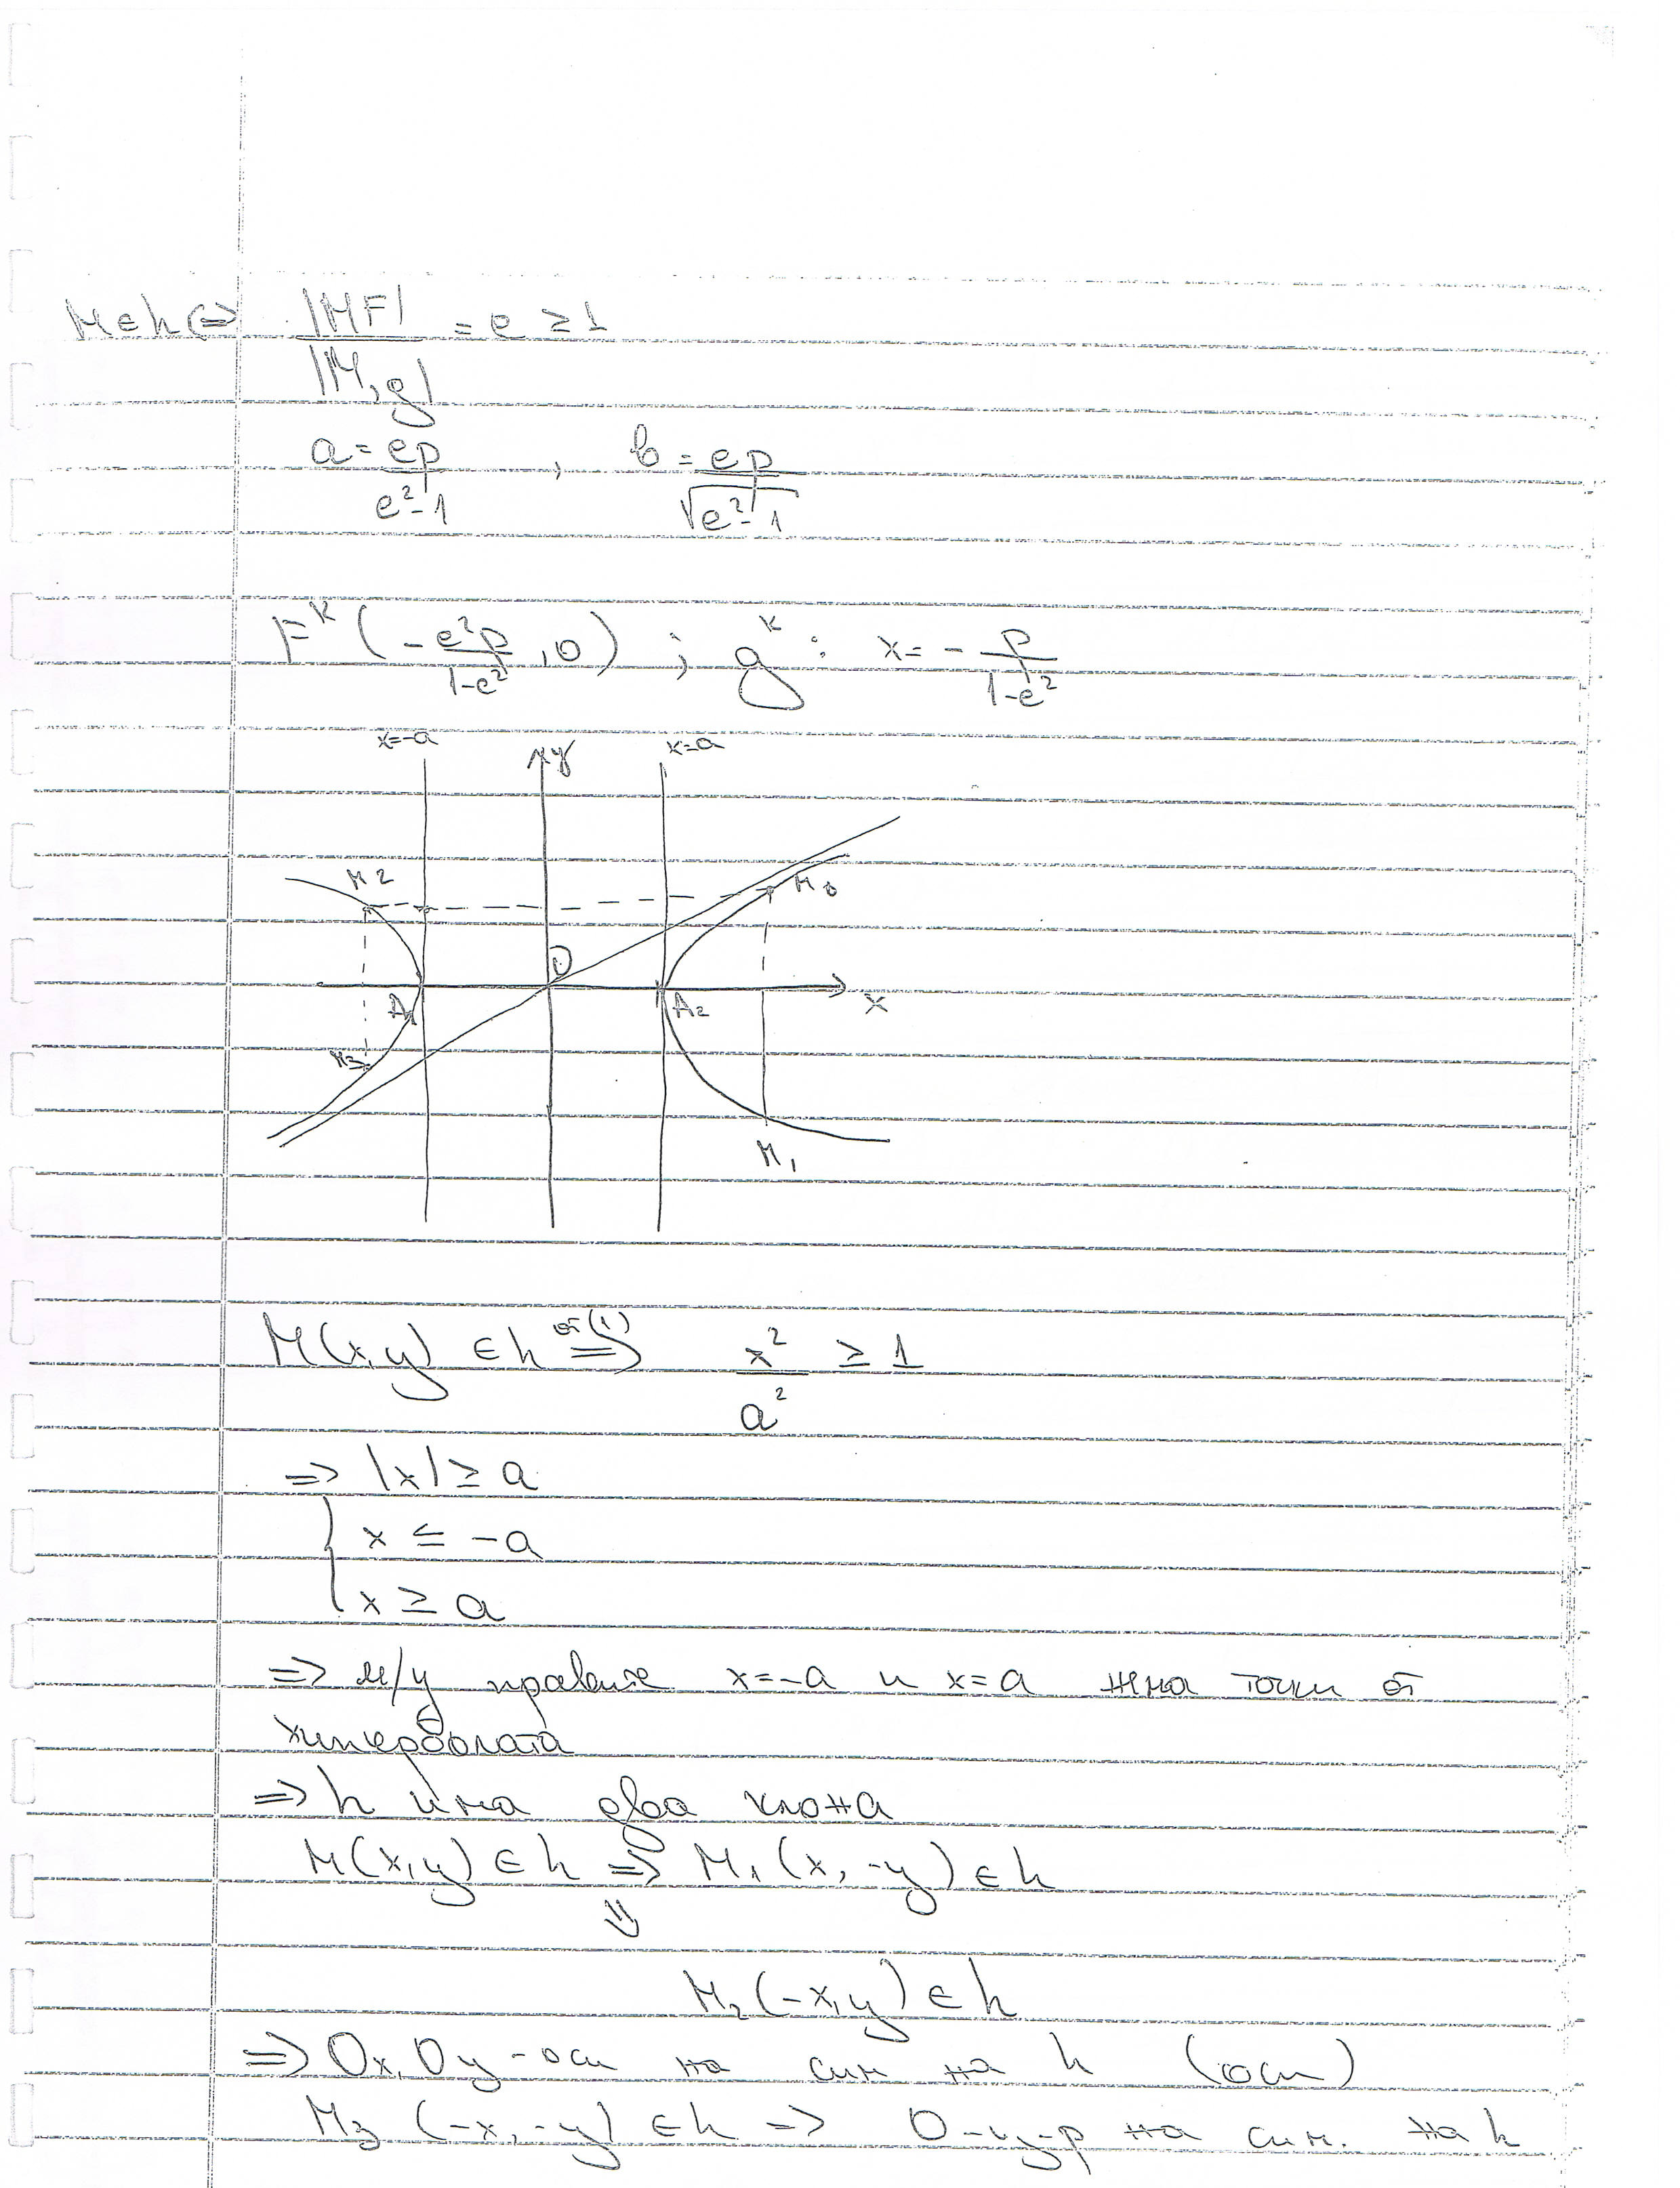 M ∈ h ⇔ |MF| / |M,g| = e ≥ 1
a = ep / e²-1 , b = ep / √e²-1
F^к (- e²p / 1-e² , 0) ; g^к : x = - p / 1-e²
x=-a y x=a
M2 M0
O
A1 A2 x
M3
M1
M(x,y) ∈ h от (1) ⇒ x² / a² ≥ 1
⇒ |x| ≥ a
{ x ≤ -a
x ≥ a
⇒ м/у правите x=-a и x=a няма точки от
хиперболата
⇒ h има два клона
M(x,y) ∈ h ⇒ M1 (x, -y) ∈ h
⇓
M2 (-x,y) ∈ h
⇒ Ox, Oy - оси на сим на h (оси)
M3 (-x, -y) ∈ h ⇒ O - ц-р на сим. на h